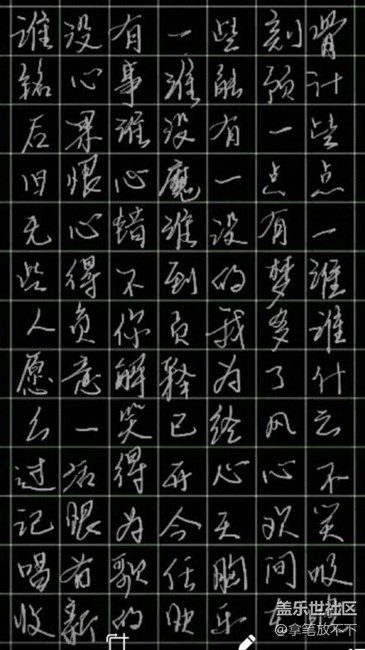 谁没有一些刻骨
铭心事谁能预计
后果谁没有一些
旧恨心魔一点点
无心错谁没有一
些得不到的梦谁
人负你负我多谁
愿意解释为了什
么一笑已经风云
过活得开心心不
记恨为今天欢笑
唱首歌任胸间吸
收新的快乐
盖乐世社区
@拿笔放不下